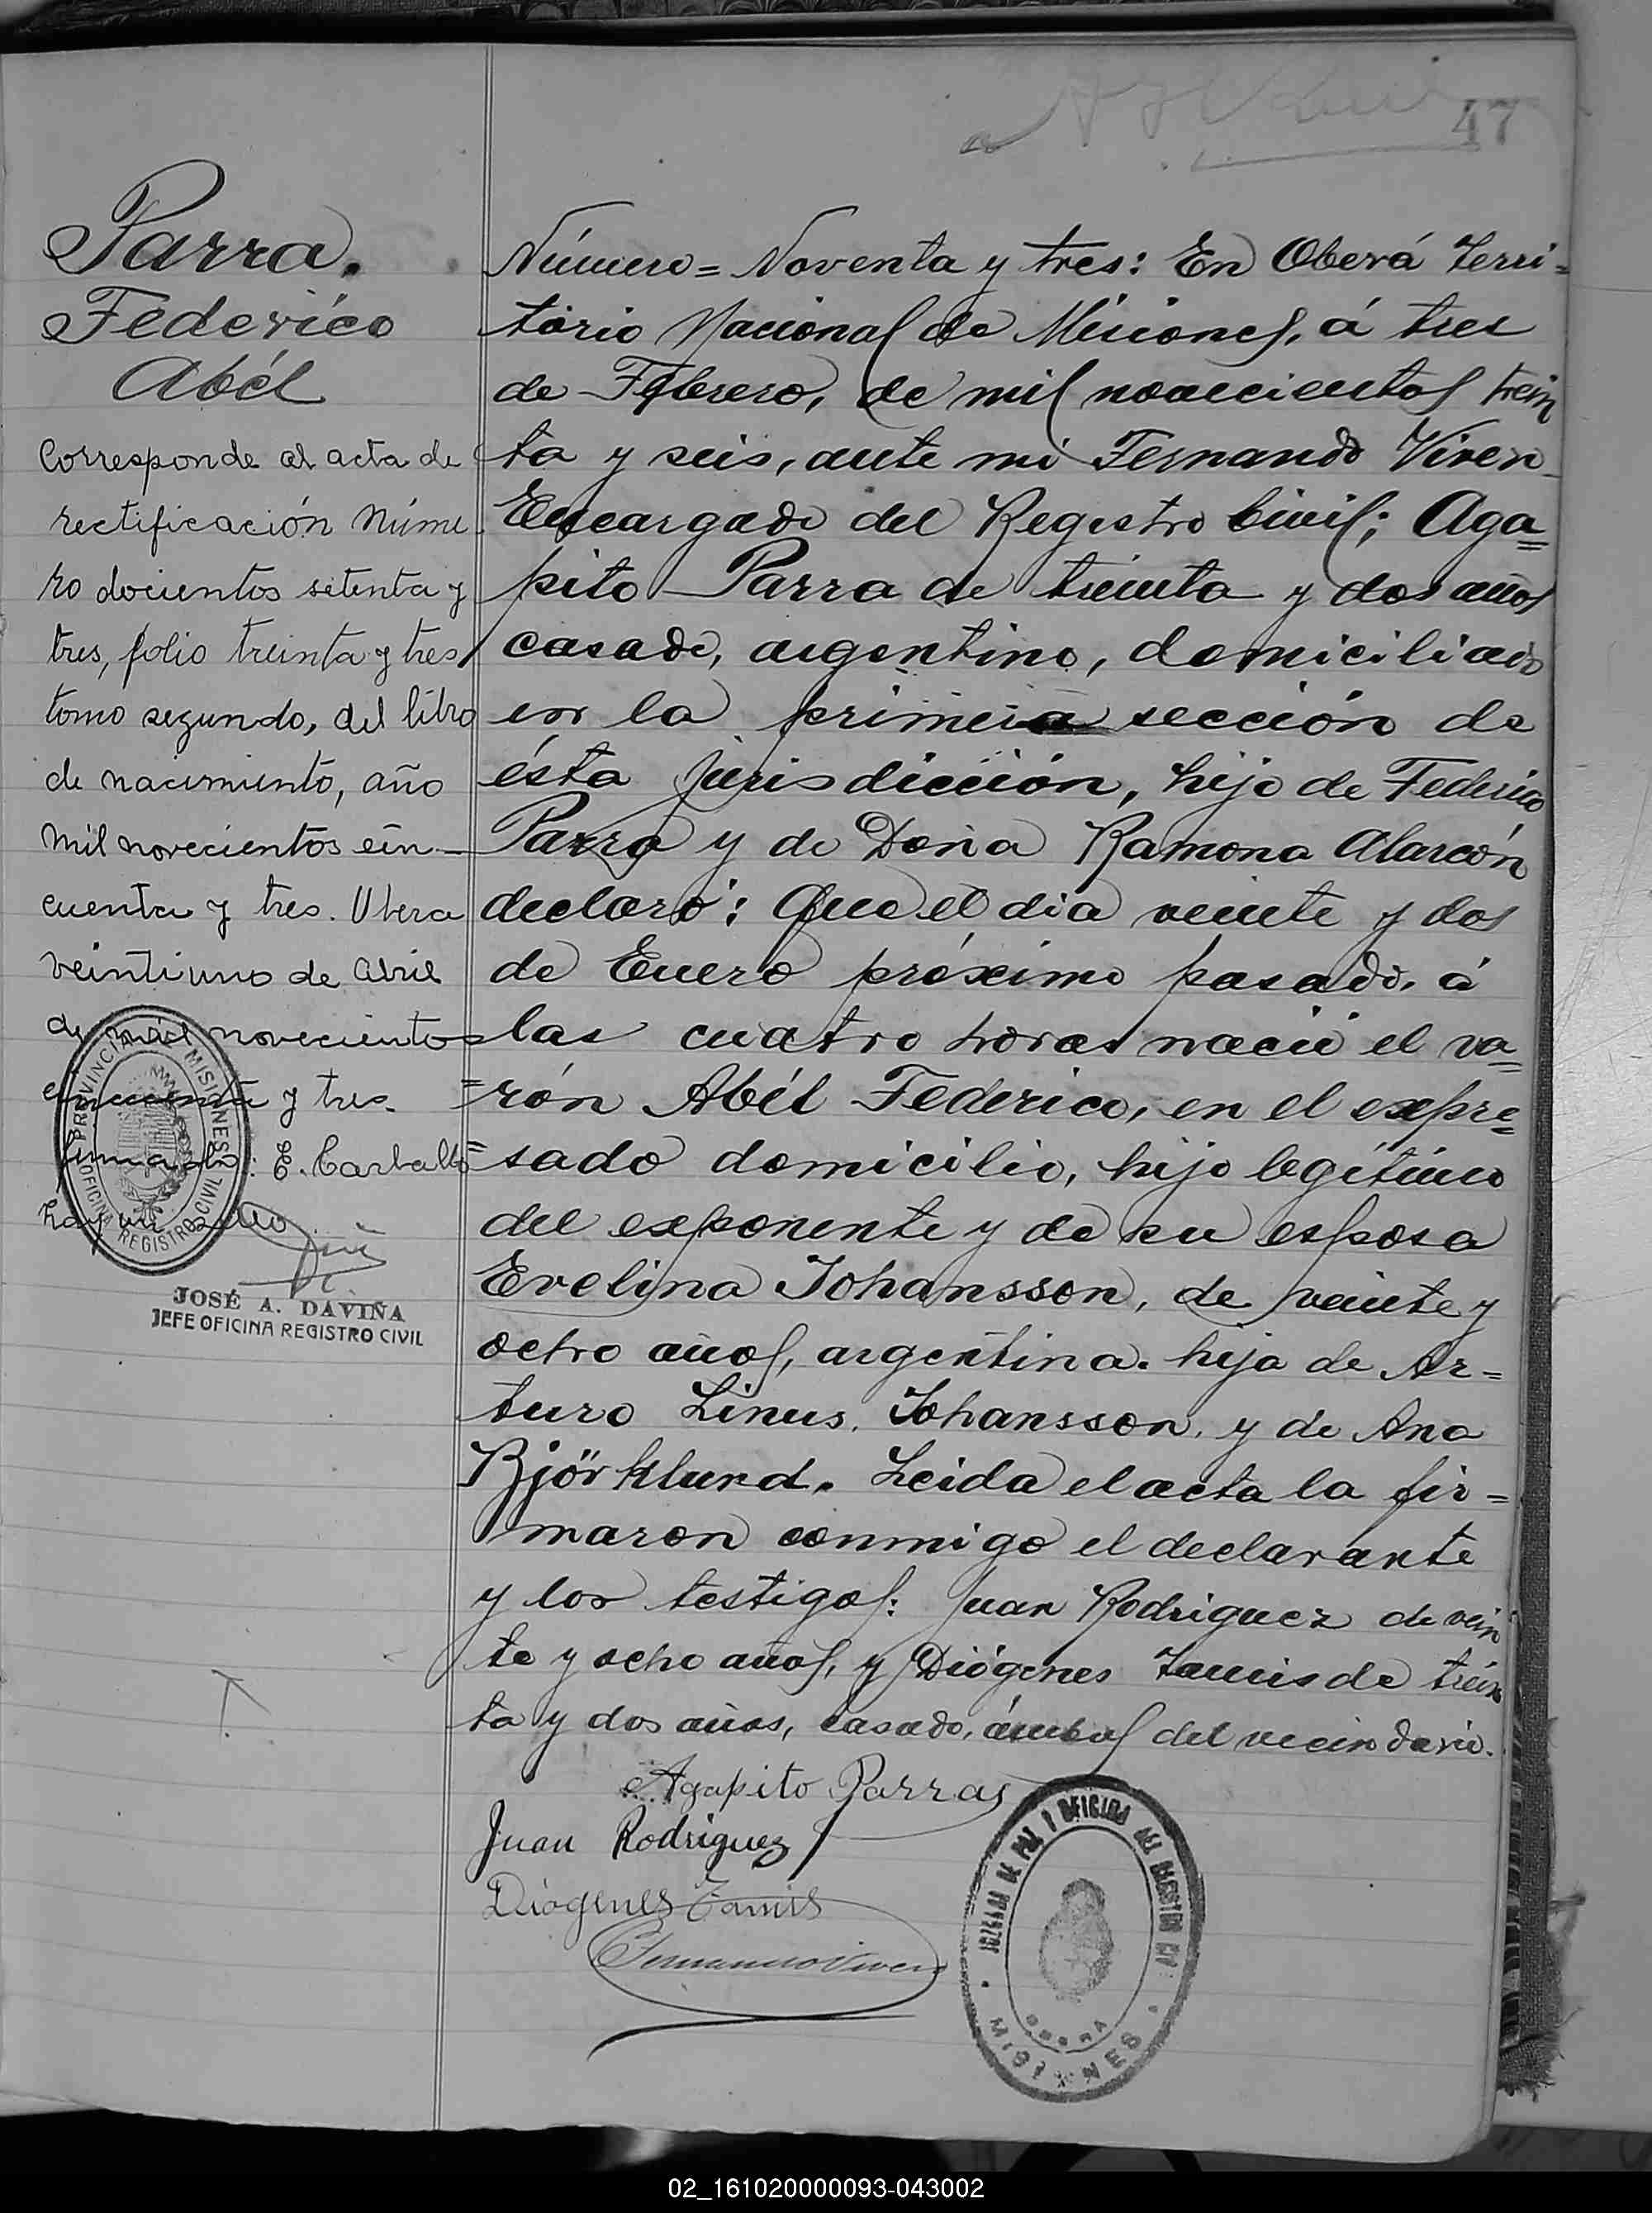 47
Parra.
Federico
Abél
Corresponde al acta de
rectificación Núme
ro docientos setenta y
tres, folio treinta y tres
tomo segundo, del libro
de nacimiento, año
mil novecientos cin
cuenta y tres. Obera
veintiuno de abril
de mil novecientos
cincuenta y tres.
firmado: E. Carballo
hay un sello
PROVINCIA MISIONES
OFICINA REGISTRO CIVIL
JOSÉ A. DAVIÑA
JEFE OFICINA REGISTRO CIVIL
Número = Noventa y tres: En Oberá Terri=
tório Nacional de Misiones, á tres
de Febrero, de mil novecientos trein
ta y seis, ante mi Fernando Viven
Encargado del Registro Civil; Aga=
pito Parra de treinta y dos años
casado, argentino, domiciliado
en la primera sección de
ésta jurisdicción, hijo de Federico
Parra y de Doña Ramona Alarcón
declaró: Que el dia veinte y dos
de Enero próximo pasado, á
las cuatro horas nació el va=
=rón Abél Federico, en el expre=
=sado domicilio, hijo legítimo
del exponente y de su esposa
Evelina Johansson, de veinte y
ocho años, argentina. hija de Ar=
turo Linus. Johansson. y de Ana
Björklund. Leida el acta la fir=
maron conmigo el declarante
y los testigos: Juan Rodriguez de vein
te y ocho años, y Diógenes Tamis de trein
ta y dos años, casado, ámbos del vecindario.
Agapito Parra
Juan Rodriguez
Diogenes Tamis
Fernando Viven
JUZGADO DE PAZ Y OFICINA DEL REGISTRO CIV
OBERA
MISIONES
02_161020000093-043002